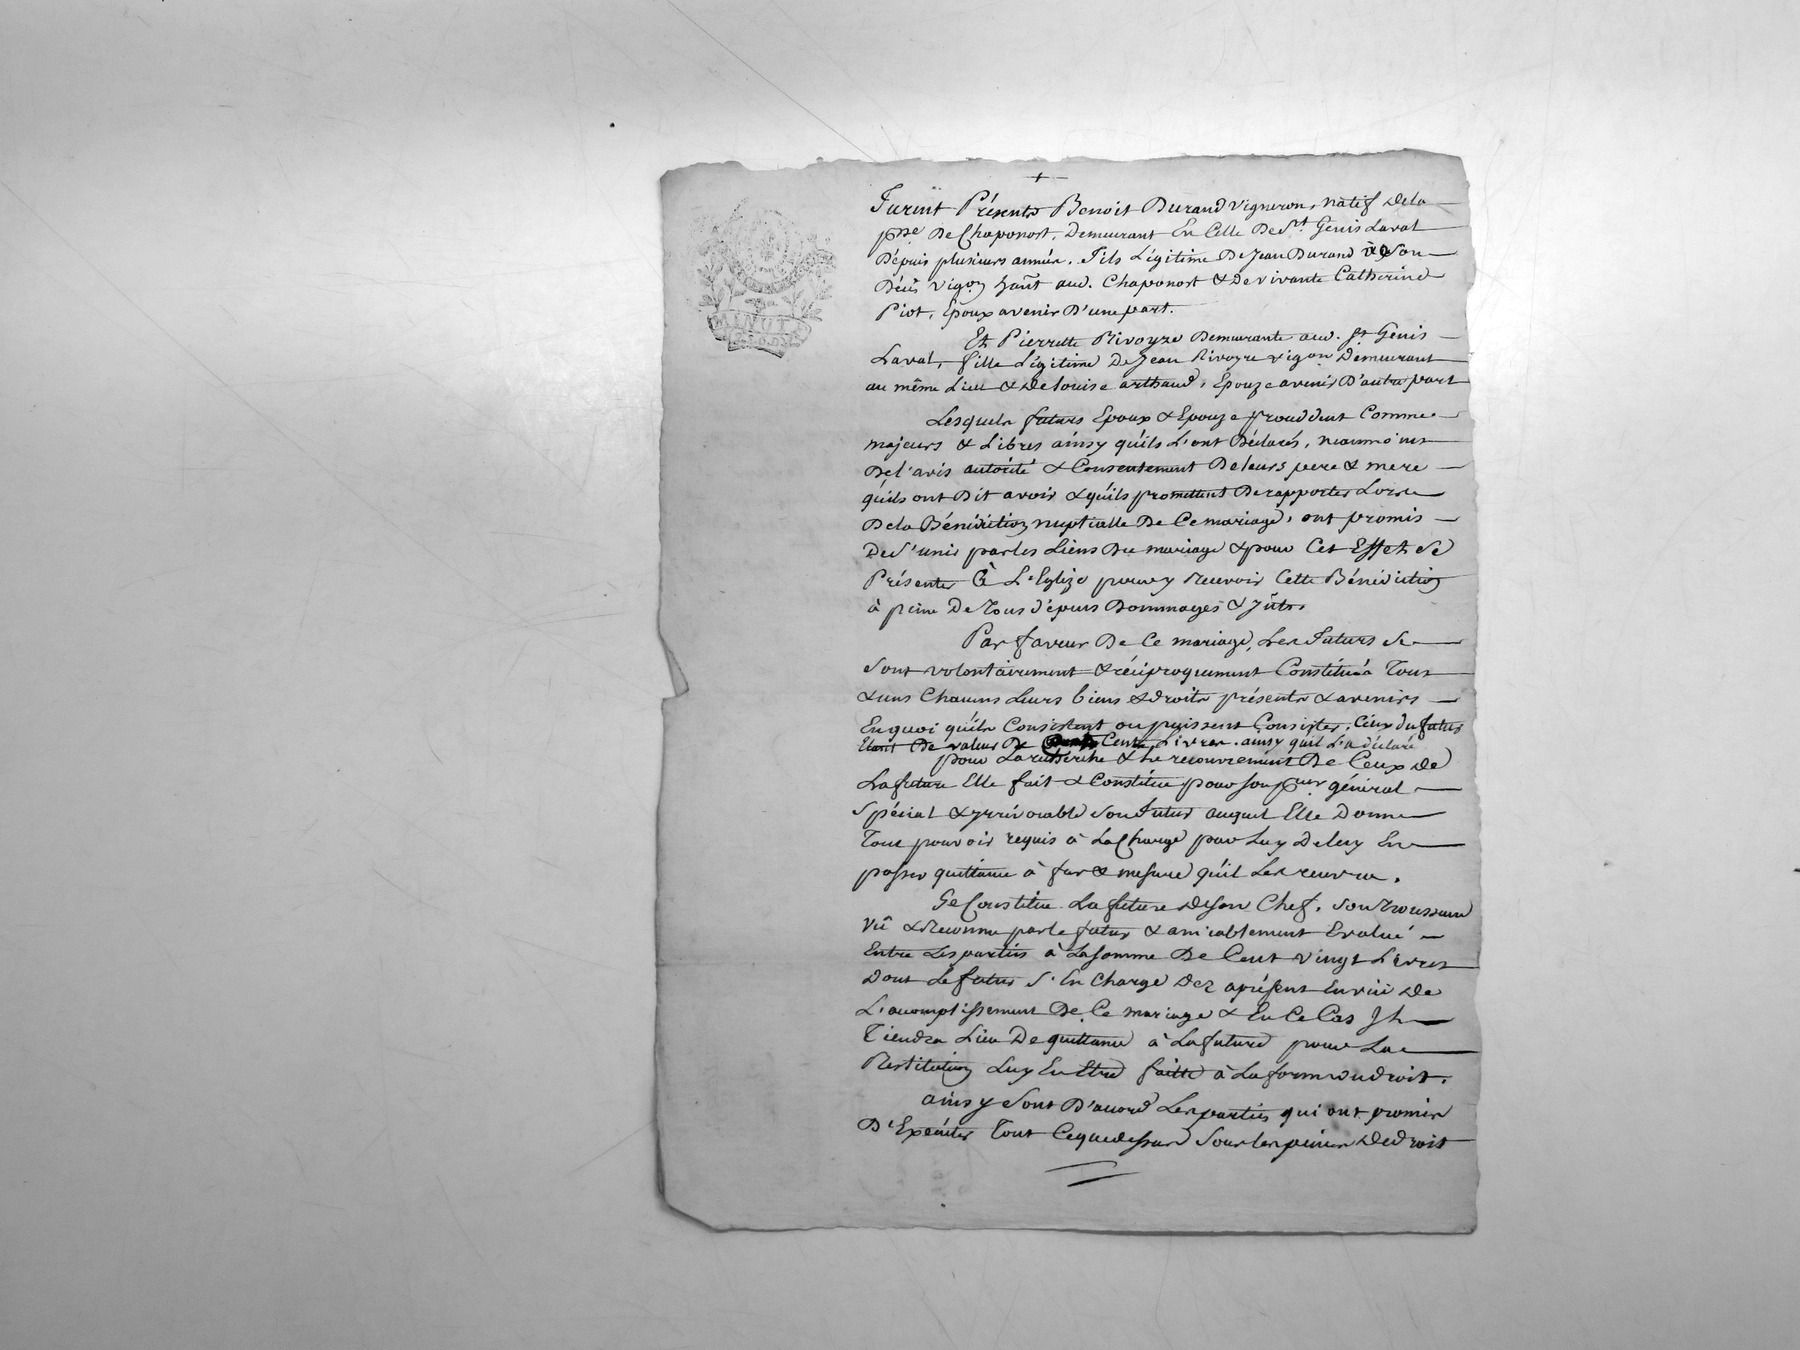 +
MINUTE
Furent Présents Benoit Durand vigneron, natif dela
psse De Chaponost, Demeurant En Celle De St Genis Laval
Dépuis plusieurs année. Fils Légitime De Jean Durand à Son
Décès vigon hant aud. Chaponost & De vivante Catherine
Piot, Epoux avenir D'une part.
Et Pierrette Rivoyre Demeurante aud. St Genis
Laval, fille Légitime De Jean Rivoyre vigon Demeurant
au même Lieu & De Louise arthaud, Epouze avenir D'autre part
Lesquels futurs Epoux & Epouze procedent Comme
majeurs & Libres ainsy qu'ils L'ont Déclarés, neanmoins
De l'avis autorité & Consentement De leurs pere & mere
qu'ils ont Dit avoir & qu'ils promettent De rapporter Lors
De la Bénédiction nuptialle De Ce mariage, ont promis
De S'unir par les Liens Du mariage & pour Cet Effet Se
Présenter à L'Eglize pour y Recevoir Cette Bénédiction
à peine De Tous dépens Dommages & Jnts.
Par faveur De Ce mariage, Les Futurs Se
Sont volontairement & réciproquement Constitués Tous
& uns Chacuns Leurs biens & droits présents & avenirs
En quoi qu'ils Consistent ou puissent Consister, Ceux du futur
Etant De valeur De Cents Livres. ainsy qu'il L'a déclaré
pour La recherche & Le recouvrement De Ceux De
La future Elle fait & Constitue pour son pcur général
Spécial & jrrévocable Son Futur auquel Elle Donne
Tout pouvoir requis à La Charge par Luy De leur En
passer quittance à fur & mesure qu'il Les recevra.
Se Constitue La future De Son Chef, Son Trousseau
Vû & Reconnu par le futur & amiablement Evalué
Entre Les parties à La Somme De Cent vingt Livres
Dont Le futur S'En Charge Dez aprésent En vüe De
L'acomplissement De Ce mariage & En Ce Cas Jl
Tiendra Lieu De quittance à La future pour La
Restitution Luy En Etre faitte à La forme du droit.
ainsy Sont D'acord Les parties qui ont promis
D'Exécuter Tout Ce que dessus Sous les peines De droit